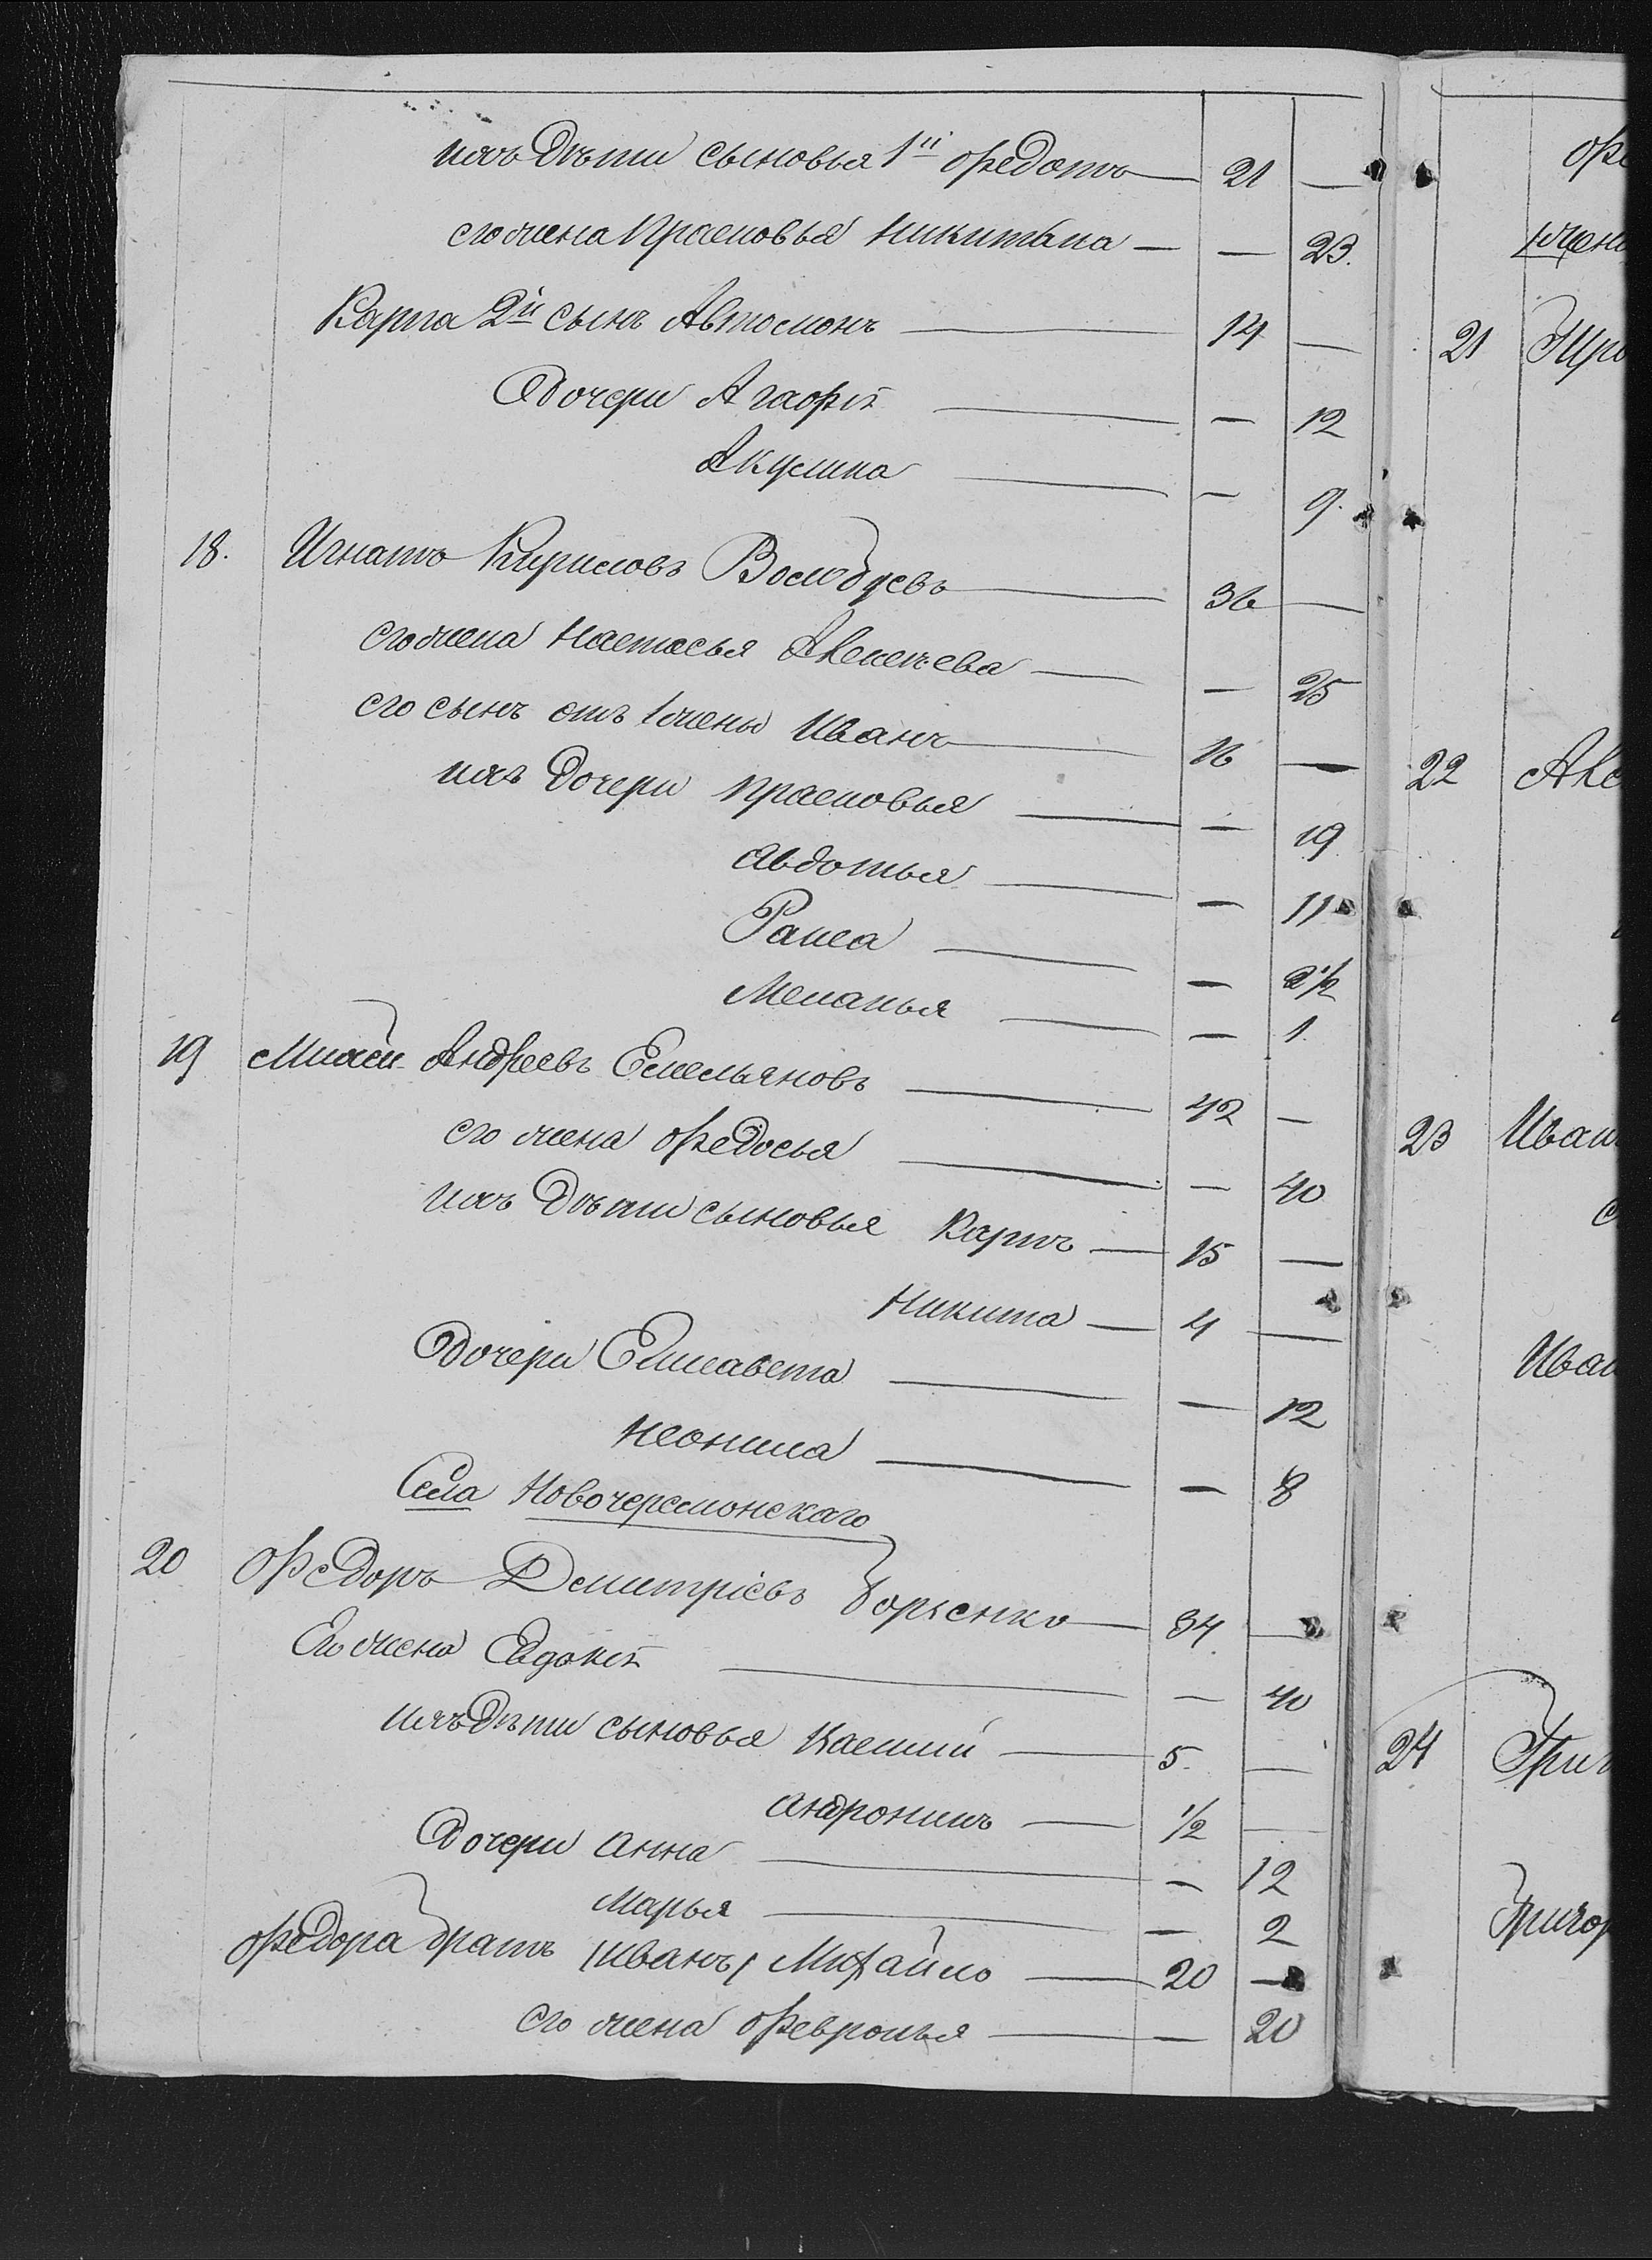 ихъ дѣти сыновья 1й Федотъ — 21 —
его жена Прасковья Никитина — — 23.
Карпа 2й сынъ Автомонъ — 14 —
Дочери Агафія — — 12
Акулина — — 9.
18. Игнатъ Кириловъ Волобуевъ — 36 —
его жена Настасья — 25
его сынъ отъ 1 жены Иванъ — 16 —
ихъ дочери Прасковья — — 19
Авдотья — — 11
Раиса — — 2 1/2
Меланья — — 1.
19 Андреевъ Емельяновъ — 42 —
его жена Федосья — — 40
ихъ дѣти сыновья Карпъ — 15 —
Никита — 4 —
Дочери Елисавета — — 12
Неонила — — 8
Села Новочеремонскаго
20 Федоръ Дмитріевъ — 34 —
Его жена Евдокія — — 40
ихъ дѣти сыновья Касьянй — 5. —
Андроникъ — 1/2 —
Дочери Анна — — 12
Марья — — 2
Федора братъ /Иванъ/ Михайло — 20 —
его жена Февронья — — 20
21
22
23 Иван
Иван
24 Григ
Григор